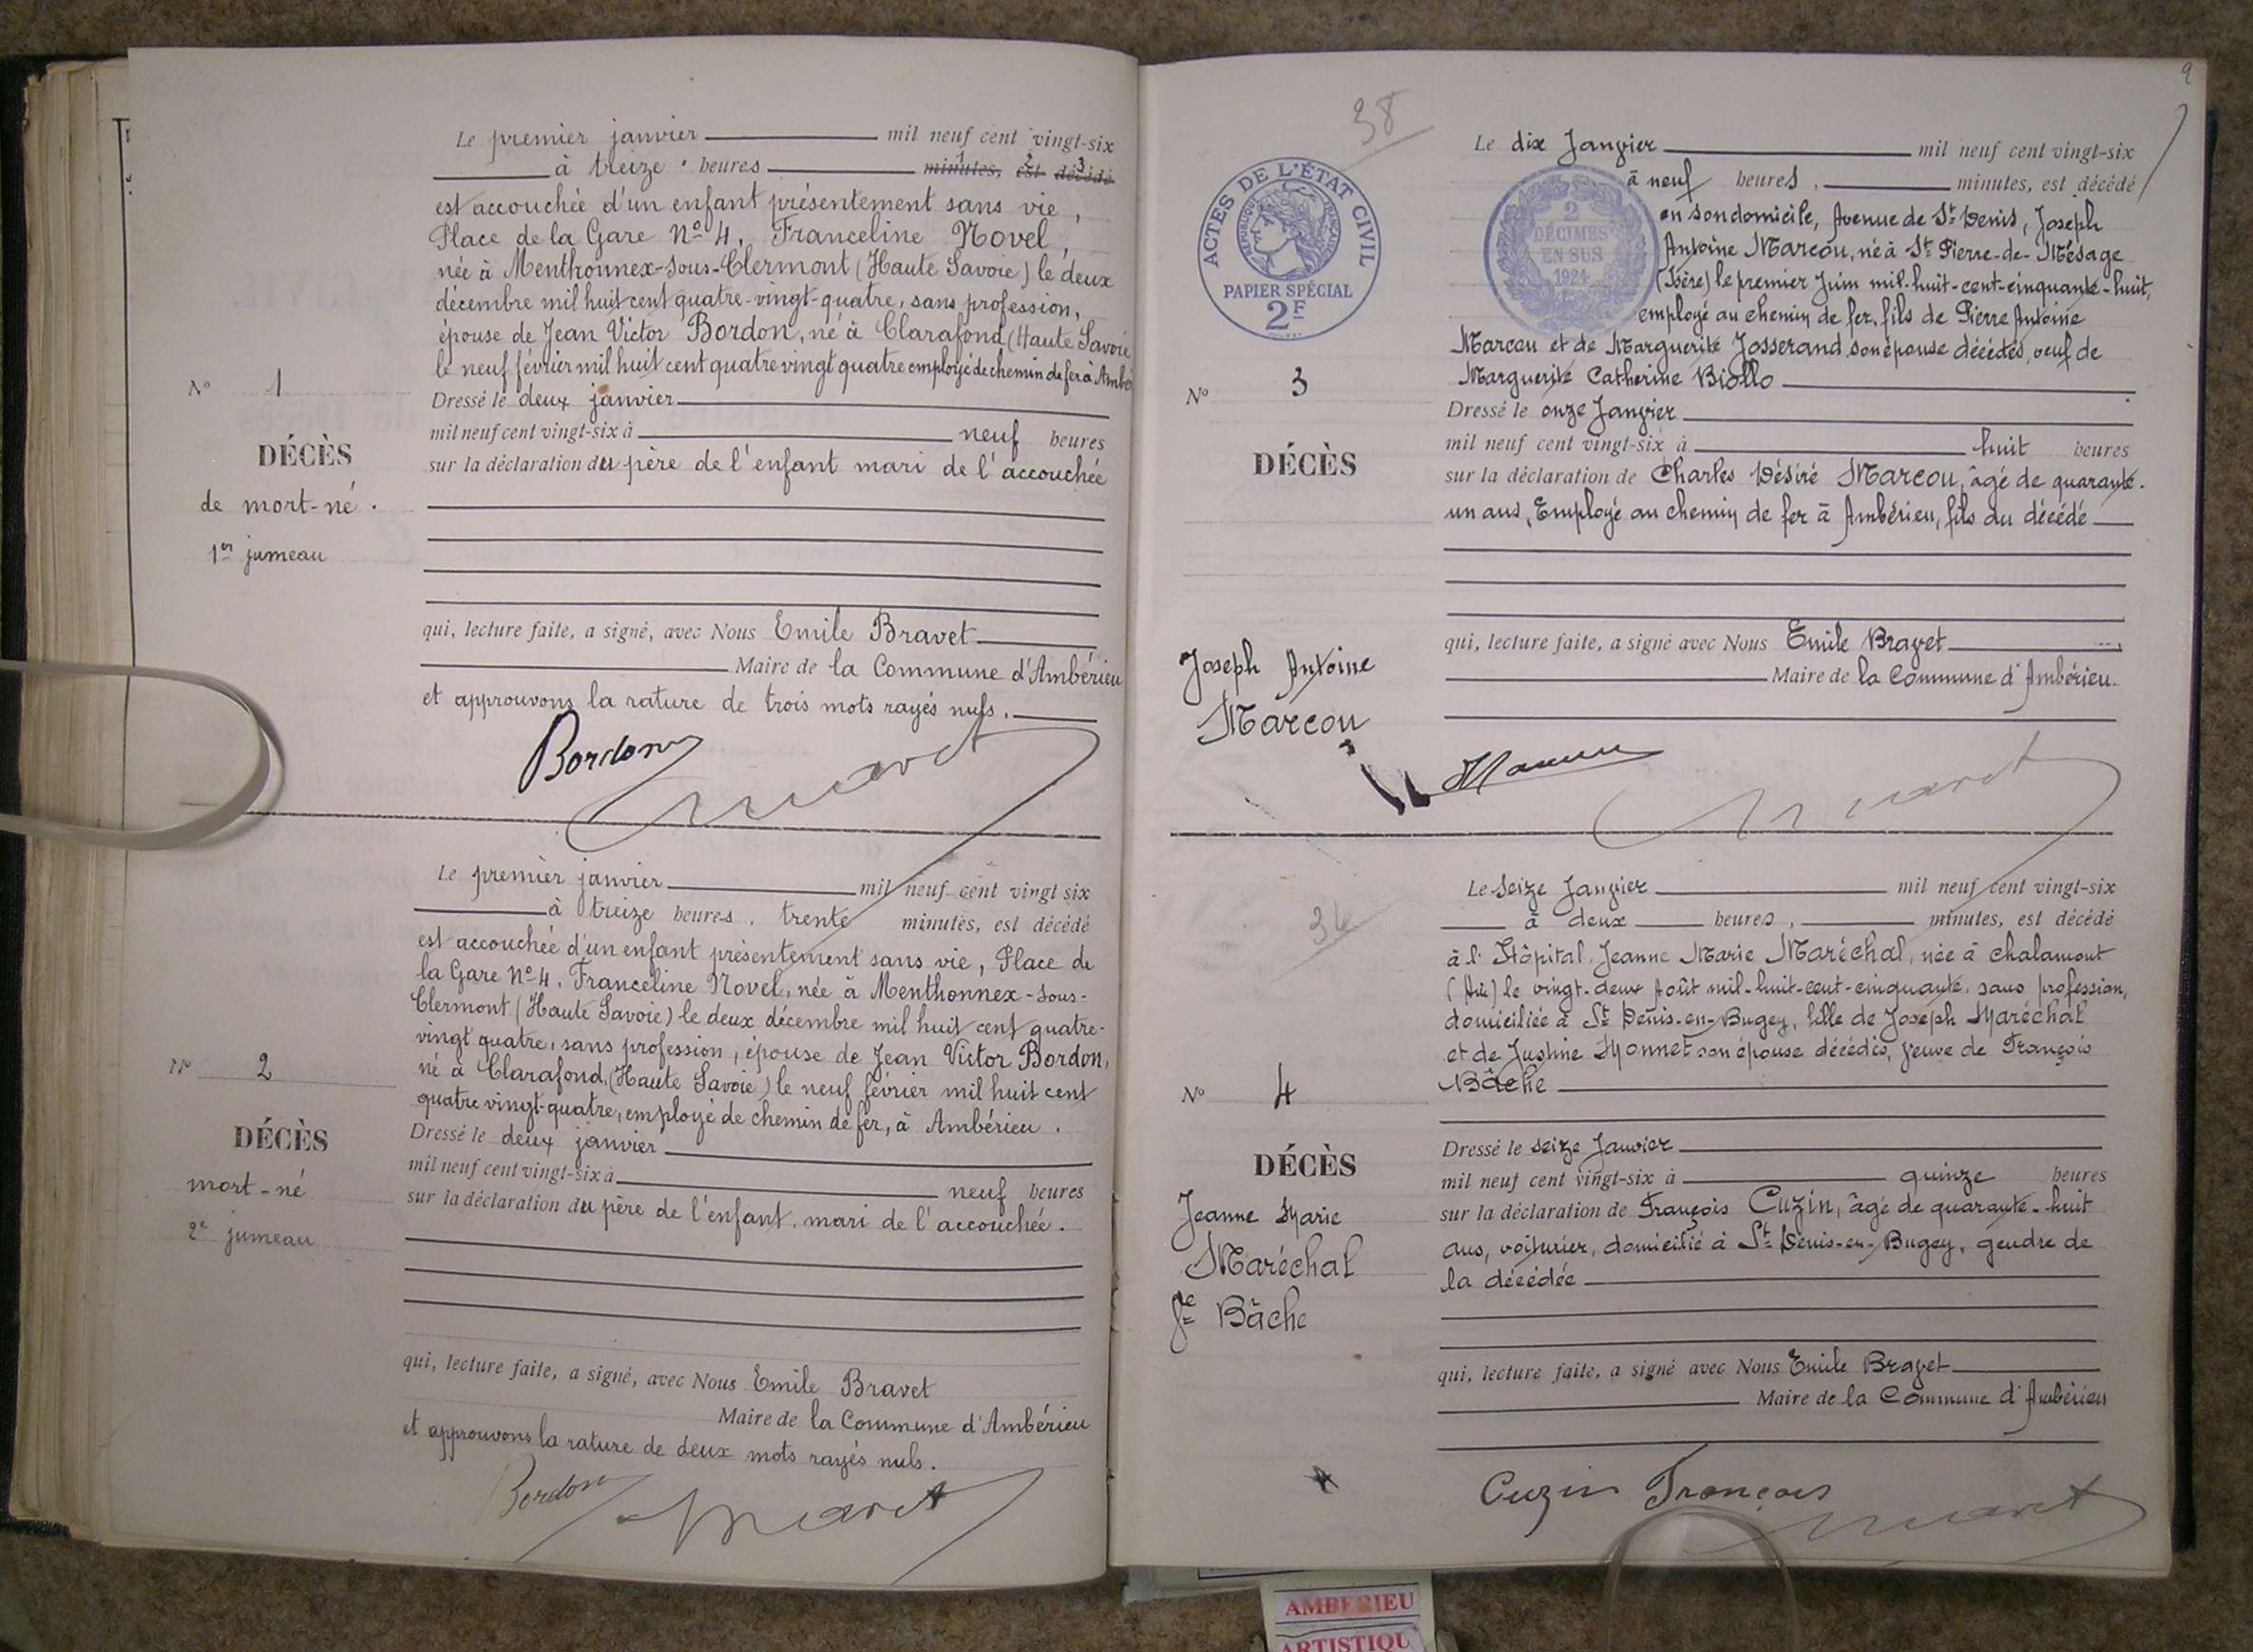 Le premier janvier mil neuf cent vingt-six
à treize heures minutes, est décédé
est accouchée d'un enfant présentement sans vie,
Place de la Gare Nº 4, Franceline Novel,
née à Menthonnex-sous-Clermont (Haute Savoie) le deux
décembre mil huit cent quatre-vingt-quatre, sans profession,
épouse de Jean Victor Bordon, né à Clarafond (Haute Savoie
le neuf février mil huit cent quatre vingt quatre employé de chemin de fer à Ambé
Nº 1
DÉCÈS
de mort-né.
1er jumeau
Dressé le deux janvier
mil neuf cent vingt-six à neuf heures
sur la déclaration du père de l'enfant mari de l'accouchée
qui, lecture faite, a signé, avec Nous Emile Bravet
Maire de la Commune d'Ambérieu
et approuvons la rature de trois mots rayés nuls.
Bordon
Le premier janvier mil neuf cent vingt six
à treize heures, trente minutes, est décédé
est accouchée d'un enfant présentement sans vie, Place de
la Gare Nº 4, Franceline Novel, née à Menthonnex-sous-
Clermont (Haute Savoie) le deux décembre mil huit cent quatre-
vingt quatre, sans profession, épouse de Jean Victor Bordon,
né à Clarafond, (Haute Savoie) le neuf février mil huit cent
quatre vingt-quatre, employé de chemin de fer, à Ambérieu.
Nº 2
DÉCÈS
mort-né
2e jumeau
Dressé le deux janvier
mil neuf cent vingt-six à neuf heures
sur la déclaration du père de l'enfant, mari de l'accouchée.
qui, lecture faite, a signé, avec Nous Emile Bravet
Maire de la Commune d'Ambérieu
et approuvons la rature de deux mots rayés nuls.
Bordon
9
38
ACTES DE L'ÉTAT CIVIL
RÉPUBLIQUE FRANÇAISE
PAPIER SPÉCIAL
2F
2
DÉCIMES
EN SUS
1924
Le dix Janvier mil neuf cent vingt-six
à neuf heures, minutes, est décédé
en son domicile, Avenue de St Denis, Joseph
Antoine Marcou, né à St Pierre-de-Mésage
(Isère) le premier Juin mil-huit-cent-cinquante-huit,
employé au chemin de fer, fils de Pierre Antoine
Marcou et de Marguerite Josserand son épouse décédés, veuf de
Marguerite Catherine Biollo
Nº 3
DÉCÈS
Joseph Antoine
Marcou
Dressé le onze Janvier
mil neuf cent vingt-six à huit heures
sur la déclaration de Charles Désiré Marcou, âgé de quarante-
un ans, Employé au chemin de fer à Ambérieu, fils du décédé
qui, lecture faite, a signé avec Nous Emile Bravet
Maire de la Commune d'Ambérieu.
34
Le seize Janvier mil neuf cent vingt-six
à deux heures, minutes, est décédé
à l'Hôpital, Jeanne Marie Maréchal, née à Chalamont
(Ain) le vingt-deux Août mil-huit-cent-cinquante, sans profession,
domiciliée à St Denis-en-Bugey, fille de Joseph Maréchal
et de Justine Monnet son épouse décédés, veuve de François
Bâche
Nº 4
DÉCÈS
Jeanne Marie
Maréchal
Ve Bâche
Dressé le seize Janvier
mil neuf cent vingt-six à quinze heures
sur la déclaration de François Cuzin, âgé de quarante-huit
ans, voiturier, domicilié à St Denis-en-Bugey, gendre de
la décédée
qui, lecture faite, a signé avec Nous Emile Bravet
Maire de la Commune d'Ambérieu
Cuzin François
AMBERIEU
ARTISTIQU